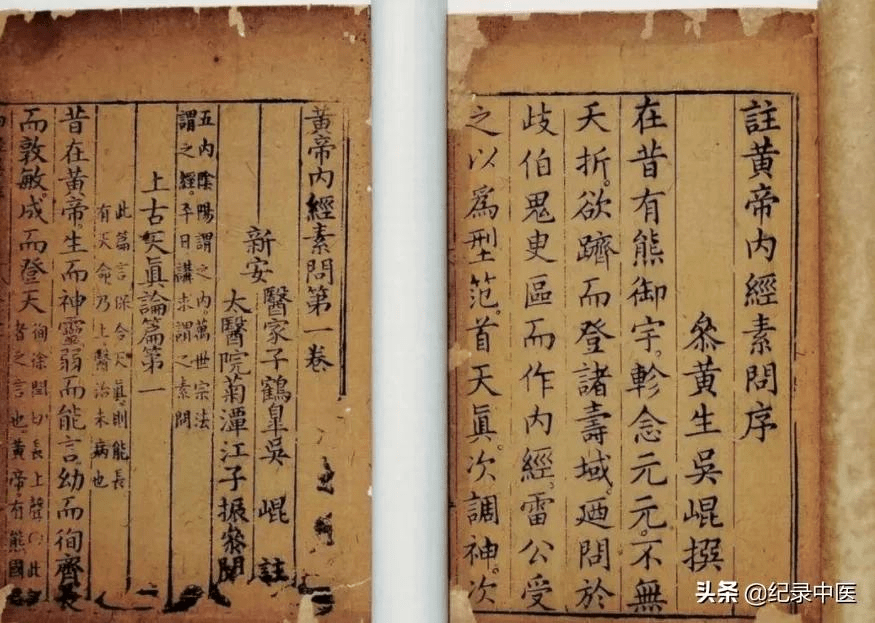 註黃帝內經素問序
參黃生吳崐撰
在昔有熊御宇。軫念元元。不無
夭折。欲躋而登諸壽域。廼問於
歧伯鬼臾區而作內經。雷公受
之以為型范。首天真。次調神。次
黃帝內經素問第一卷
新安
醫家子鶴臯吳 崐 註
太醫院菊潭江子振參閱
五內陰陽謂之內。萬世宗法
謂之經。平日講求謂之素問
上古天真論篇第一
此篇言保合天真。則能長
有天命。乃上醫治未病也
昔在黃帝。生而神靈。弱而能言。幼而徇齊。長
而敦敏。成而登天
徇徐閏切長上聲〇此
者之言也。黃帝。有熊國
头条 @纪录中医